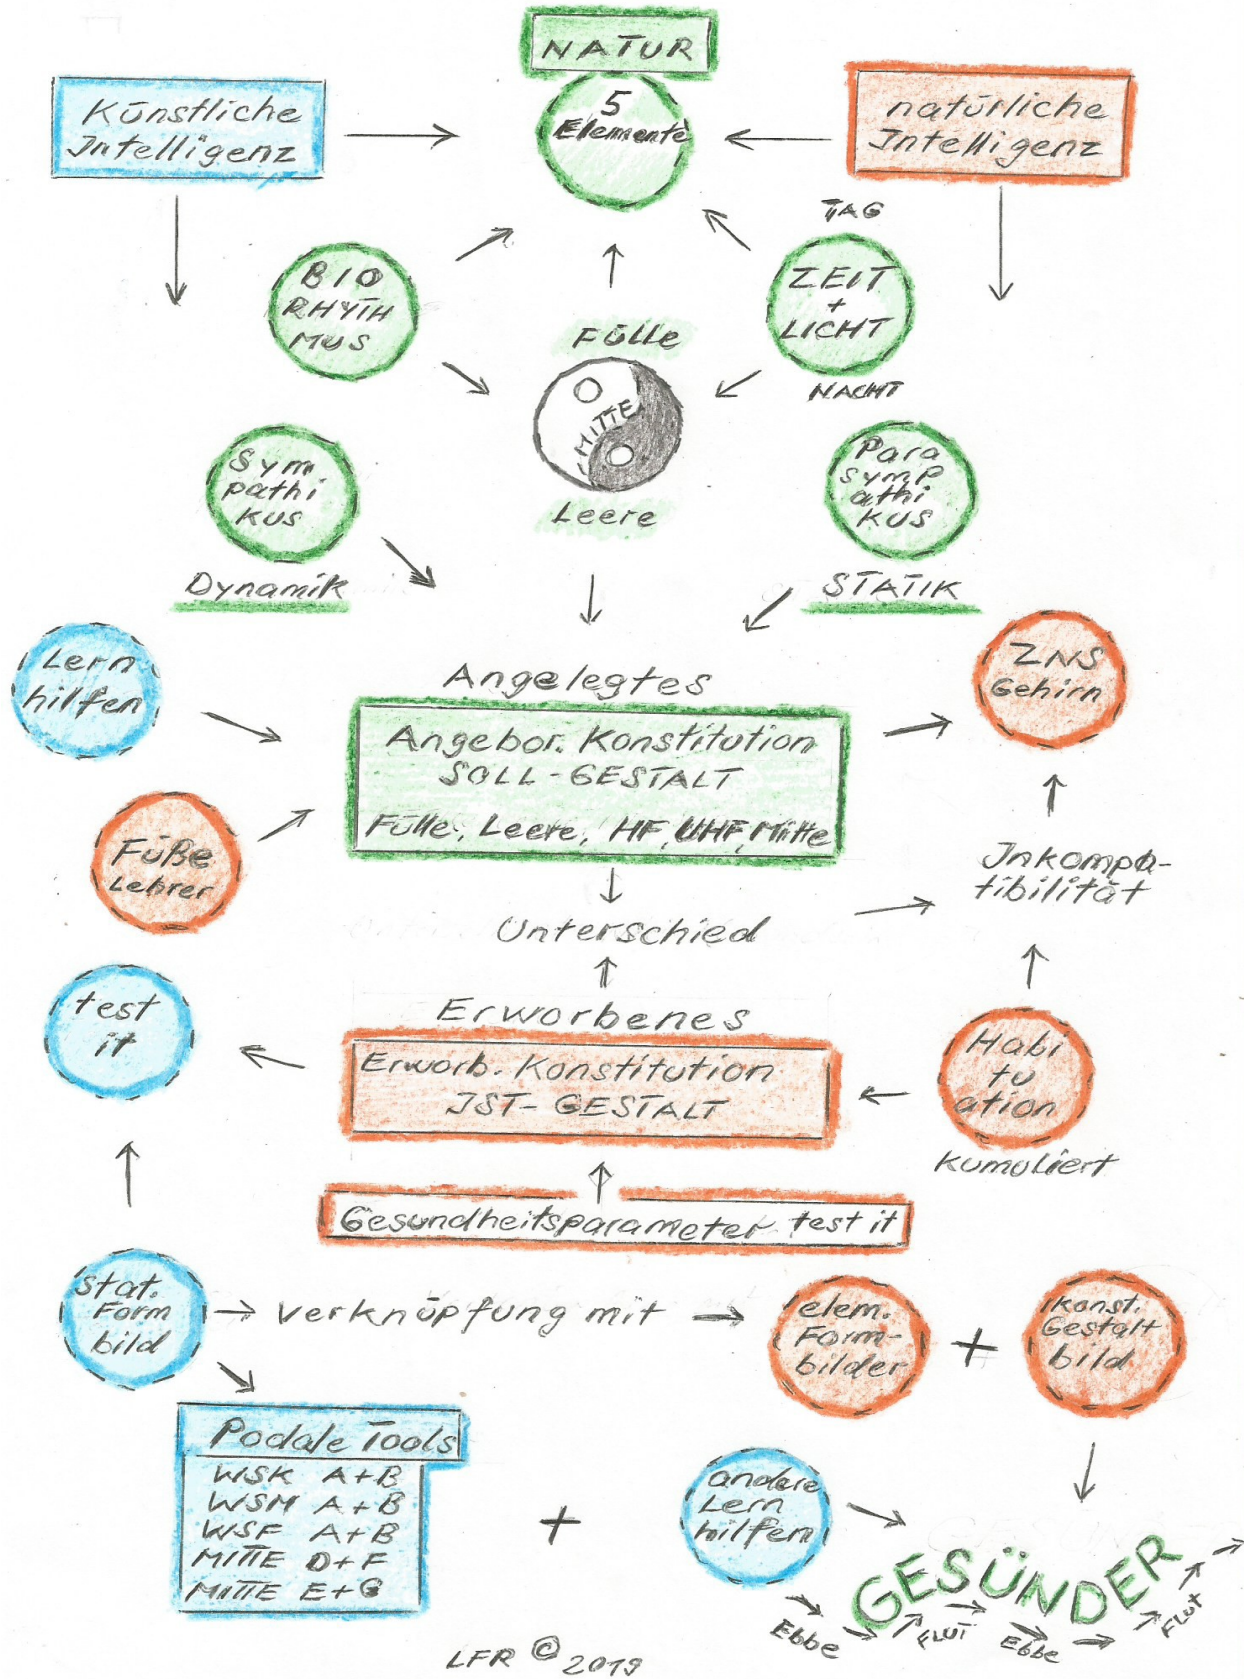 NATUR
Künstliche
Intelligenz
5
Elemente
natürliche
Intelligenz
TAG
BIO
RHYTH
MUS
ZEIT
+
LICHT
NACHT
Fülle
MITTE
Leere
Sym
pathi
kus
Dynamik
Para
symp
athi
kus
STATIK
Lern
hilfen
ZNS
Gehirn
Angelegtes
Angebor. Konstitution
SOLL-GESTALT
Fülle, Leere, HF, UHF, Mitte
Füße
Lehrer
Inkompa-
tibilität
Unterschied
test
it
Erworbenes
Erworb. Konstitution
IST-GESTALT
Habi
tu
ation
kumuliert
Gesundheitsparameter test it
stat.
Form
bild
Verknüpfung mit
elem.
Form-
bilder
+
konst.
Gestalt
bild
Podale Tools
WSK A+B
WSM A+B
WSF A+B
MITTE D+F
MITTE E+G
+
andere
Lern
hilfen
GESÜNDER
Ebbe
FLUT
Ebbe
FLUT
LFR © 2019